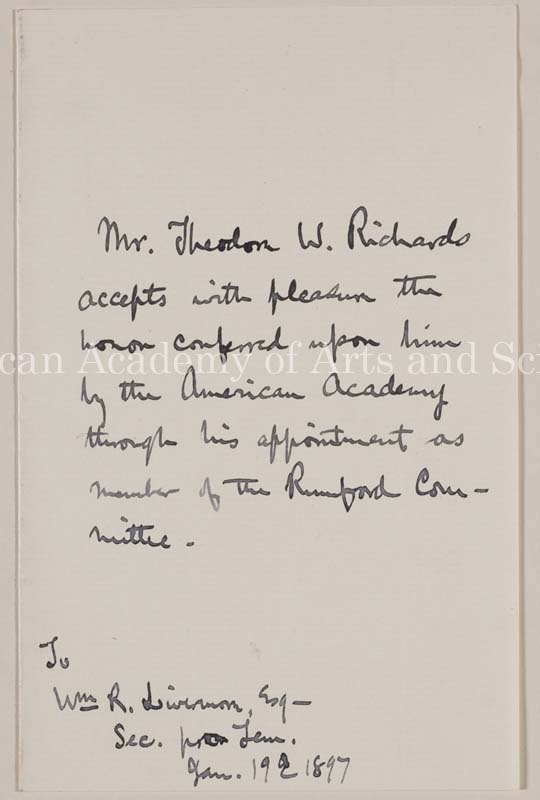 Mr. Theodore W. Richards
accepts with pleasure the
honor conferred upon him
can Academy of Arts and Sci
by the American Academy
through his appointment as
member of the Rumford Com-
mittee.
To
Wm R. Livermore, Esq-
Sec. pro Tem.
Jan. 19 1897